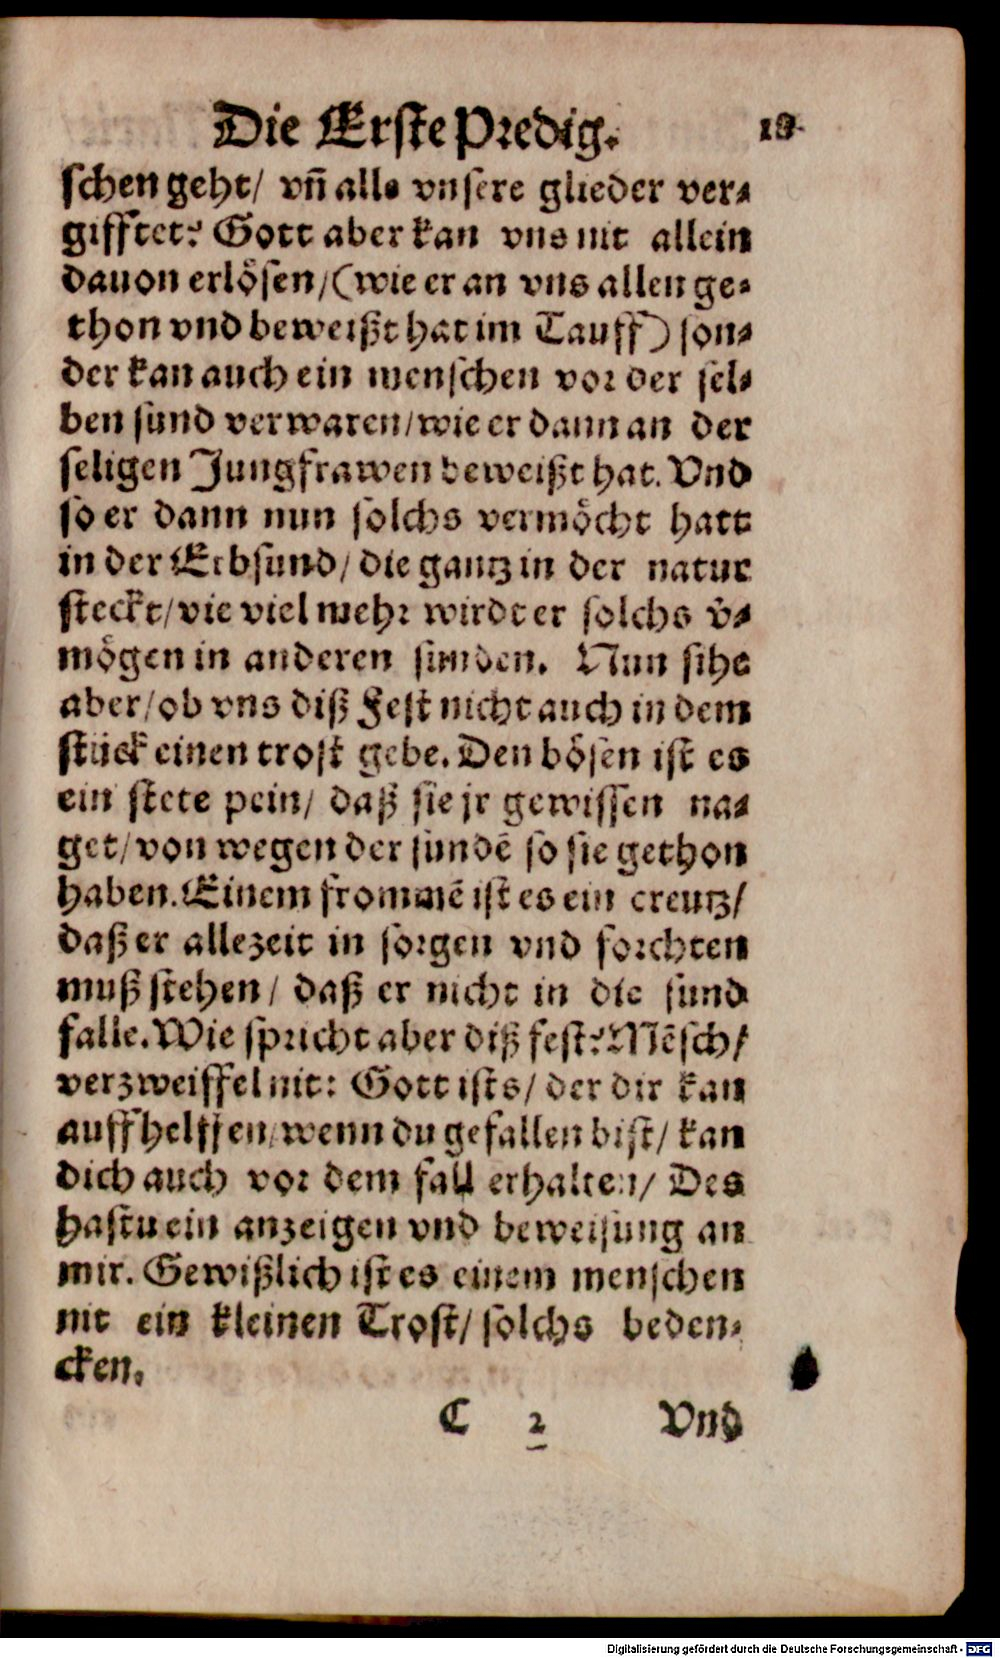 Die Erste Predig. 19
schen geht/ vñ alle vnsere glieder ver-
gifftet? Gott aber kan vns nit allein
dauon erlösen/(wie er an vns allen ge-
thon vnd beweißt hat im Tauff) son-
der kan auch ein menschen vor der sel-
ben sund verwaren/wie er dann an der
seligen Jungfrawen beweißt hat. Vnd
so er dann nun solchs vermöcht hatt
in der Erbsund/ die gantz in der natur
steckt/vie viel mehr wirdt er solchs v̈-
mögen in anderen sunden. Nun sihe
aber/ob vns diß Fest nicht auch in dem
stück einen trost gebe. Den bösen ist es
ein stete pein/ daß sie jr gewissen na-
get/von wegen der sundē so sie gethon
haben. Einem frommē ist es ein creutz/
daß er allezeit in sorgen vnd forchten
muß stehen/ daß er nicht in die sund
falle. Wie spricht aber diß fest? Mēsch/
verzweiffel nit: Gott ists/ der dir kan
auffhelffen/wenn du gefallen bist/ kan
dich auch vor dem fall erhalten/ Des
hastu ein anzeigen vnd beweisung an
mir. Gewißlich ist es einem menschen
nit ein kleinen Trost/ solchs beden-
cken.
C 2 Vnd
Digitalisierung gefördert durch die Deutsche Forschungsgemeinschaft - DFG